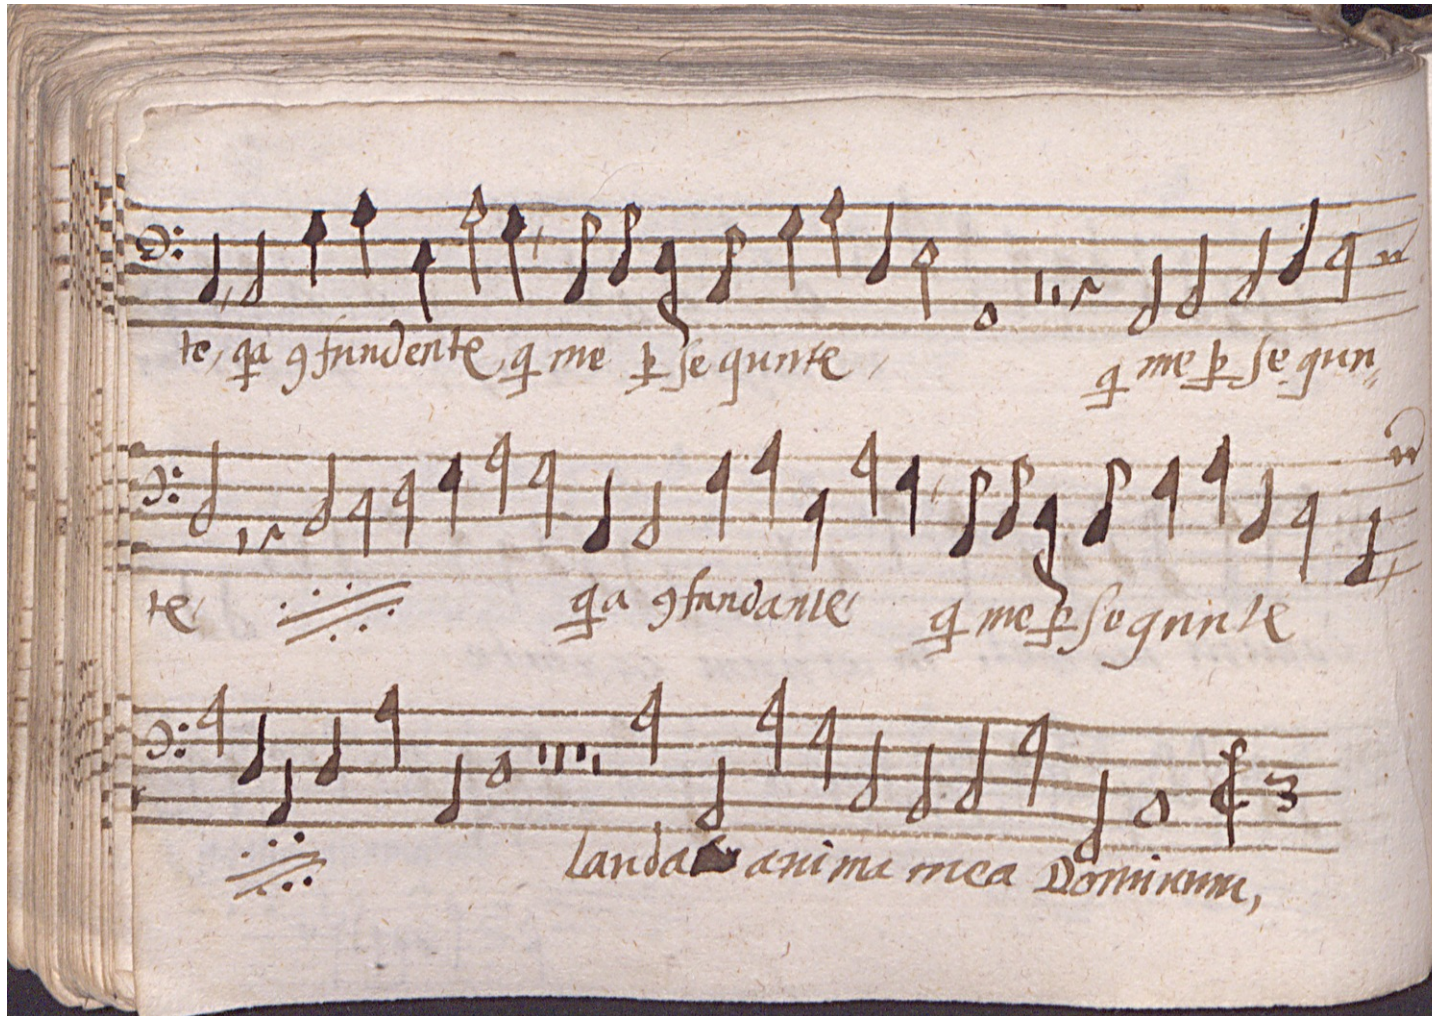 te, qa 9fundente qi me p se qunte, qi me p se qun
te, qa 9fundante, qi me p se qunte
lauda anima mea Dominum,
3